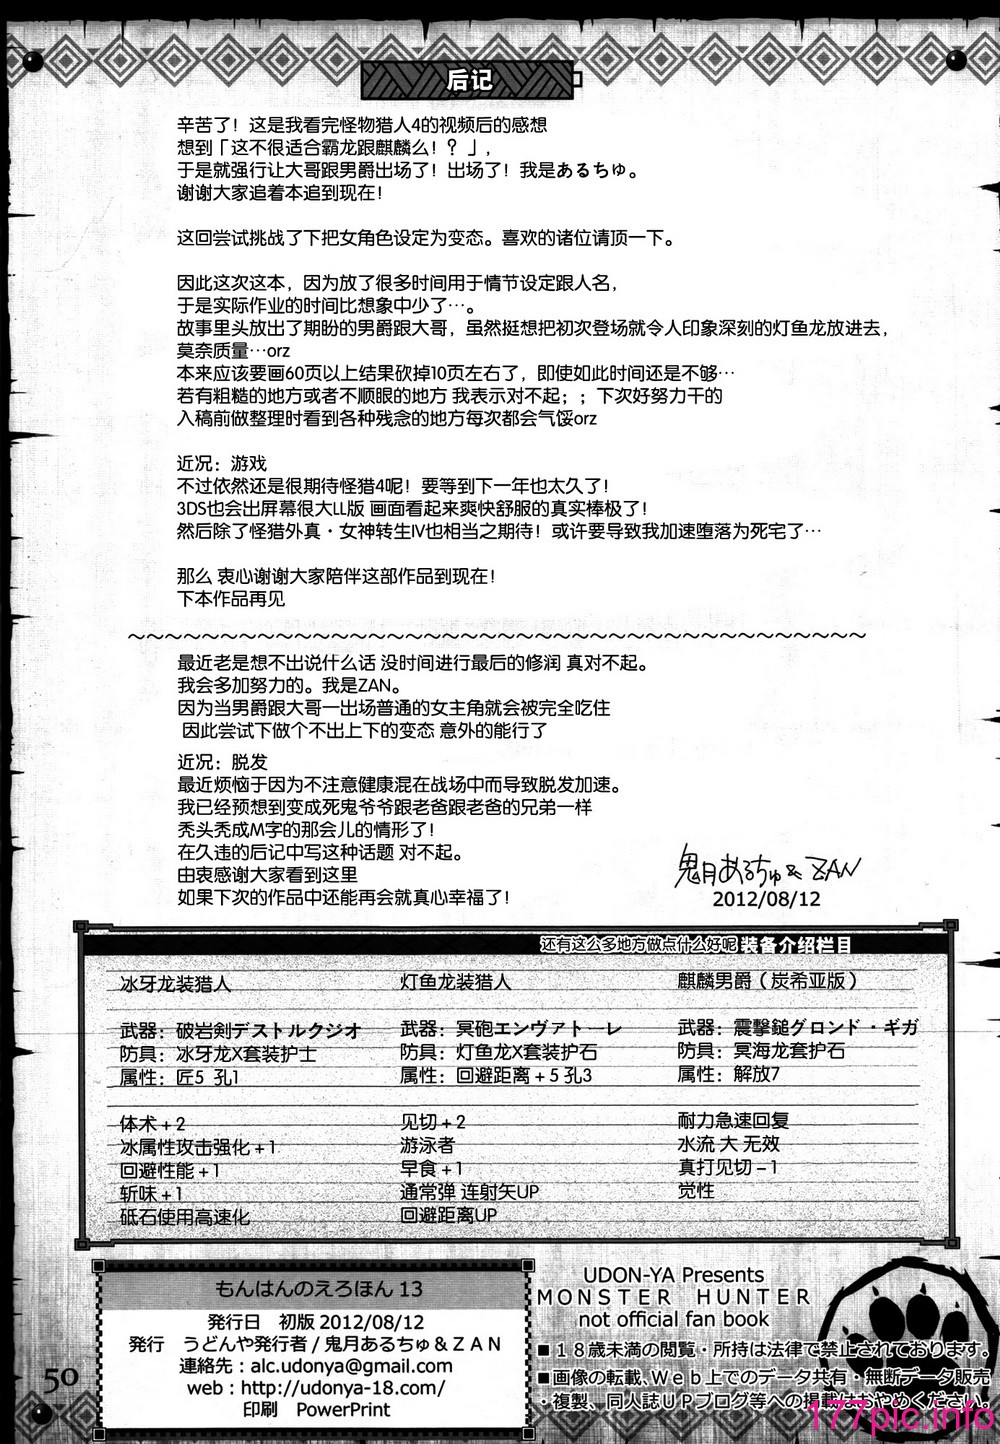 后记
辛苦了！这是我看完怪物猎人4的视频后的感想
想到「这不很适合霸龙跟麒麟么！？」，
于是就强行让大哥跟男爵出场了！出场了！我是あるちゅ。
谢谢大家追着本追到现在！
这回尝试挑战了下把女角色设定为变态。喜欢的诸位请顶一下。
因此这次这本，因为放了很多时间用于情节设定跟人名，
于是实际作业的时间比想象中少了…。
故事里头放出了期盼的男爵跟大哥，虽然挺想把初次登场就令人印象深刻的灯鱼龙放进去，
莫奈质量…orz
本来应该要画60页以上结果砍掉10页左右了，即使如此时间还是不够…
若有粗糙的地方或者不顺眼的地方 我表示对不起；；下次好努力干的
入稿前做整理时看到各种残念的地方每次都会气馁orz
近况：游戏
不过依然还是很期待怪猎4呢！要等到下一年也太久了！
3DS也会出屏幕很大LL版 画面看起来爽快舒服的真实棒极了！
然后除了怪猎外真・女神转生IV也相当之期待！或许要导致我加速堕落为死宅了…
那么 衷心谢谢大家陪伴这部作品到现在！
下本作品再见
～～～～～～～～～～～～～～～～～～～～～～～～～～～～～～～～～～～～～～～～
最近老是想不出说什么话 没时间进行最后的修润 真对不起。
我会多加努力的。我是ZAN。
因为当男爵跟大哥一出场普通的女主角就会被完全吃住
因此尝试下做个不出上下的变态 意外的能行了
近况：脱发
最近烦恼于因为不注意健康混在战场中而导致脱发加速。
我已经预想到变成死鬼爷爷跟老爸跟老爸的兄弟一样
秃头秃成M字的那会儿的情形了！
在久违的后记中写这种话题 对不起。
由衷感谢大家看到这里
如果下次的作品中还能再会就真心幸福了！
鬼月あるちゅ&ZAN
2012/08/12
还有这么多地方做点什么好呢 装备介绍栏目
冰牙龙装猎人
武器：破岩剣デストルクジオ
防具：冰牙龙X套装护士
属性：匠5 孔1
体术＋2
冰属性攻击强化＋1
回避性能＋1
斩味＋1
砥石使用高速化
灯鱼龙装猎人
武器：冥砲エンヴァトーレ
防具：灯鱼龙X套装护石
属性：回避距离＋5 孔3
见切＋2
游泳者
早食＋1
通常弹 连射矢UP
回避距离UP
麒麟男爵（炭希亚版）
武器：震撃鎚グロンド・ギガ
防具：冥海龙套护石
属性：解放7
耐力急速回复
水流 大 无效
真打见切－1
觉性
もんはんのえろほん 13
発行日　初版 2012/08/12
発行　うどんや発行者/鬼月あるちゅ&ZAN
連絡先：alc.udonya@gmail.com
web：http://udonya-18.com/
印刷　PowerPrint
UDON-YA Presents
MONSTER HUNTER
not official fan book
■１８歳未満の閲覧・所持は法律で禁止されております。
■画像の転載、Web上でのデータ共有・無断データ販売
・複製、同人誌UPブログ等への掲載はおやめください。
50
177pic.info